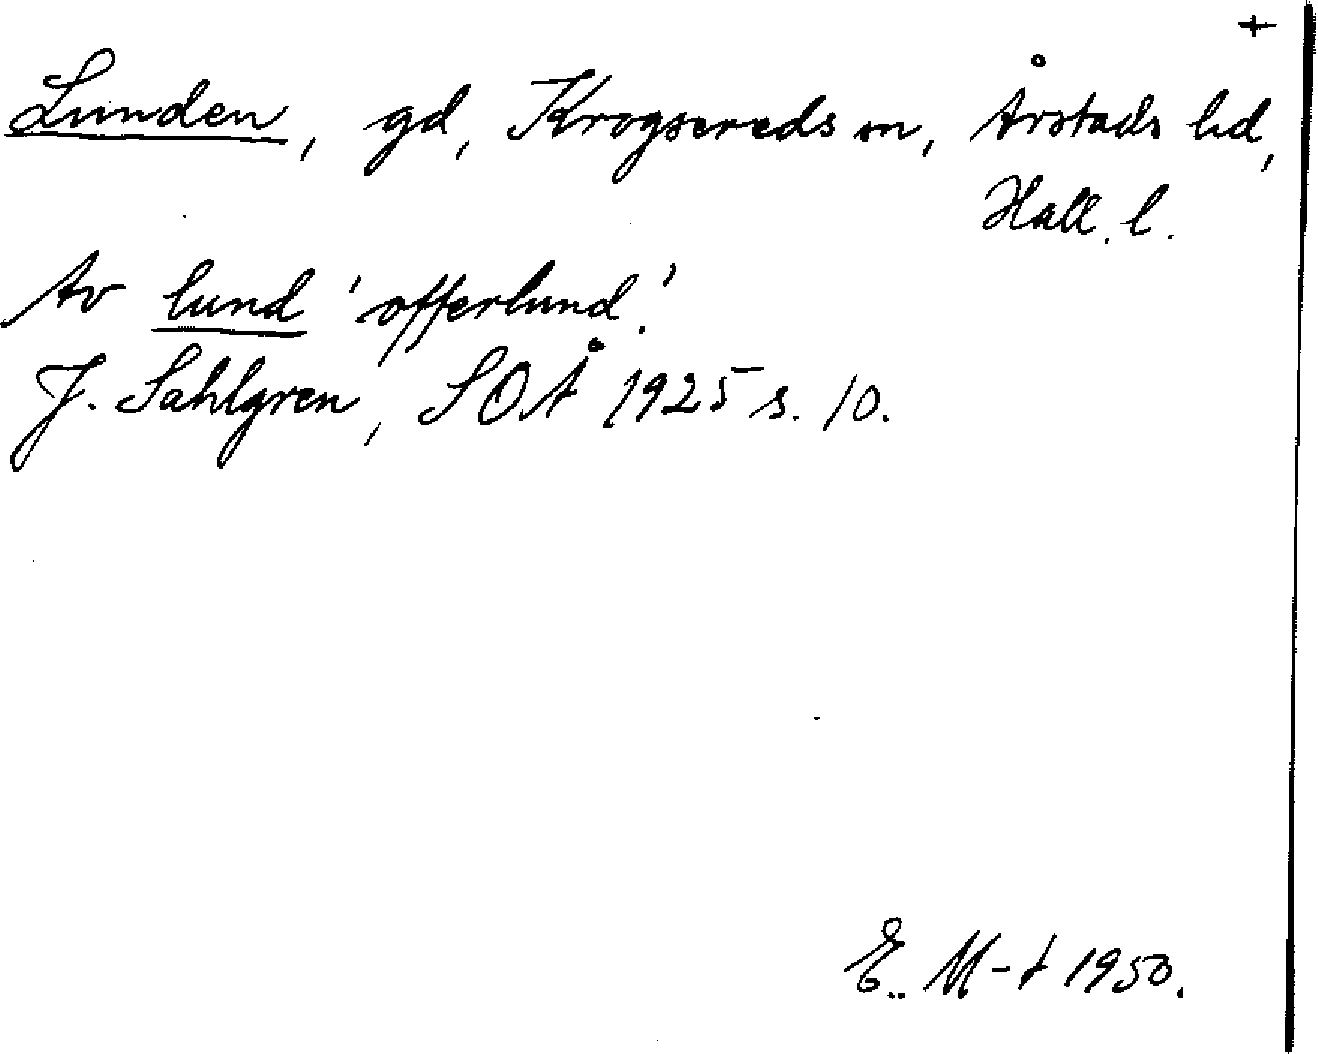 +
Lunden, gd, Krogsereds sn, Årstads hd,
Hall. l.
Av lund 'offerlund'.
J. Sahlgren, SOÅ 1925 s. 10.
E. M-t 1950.